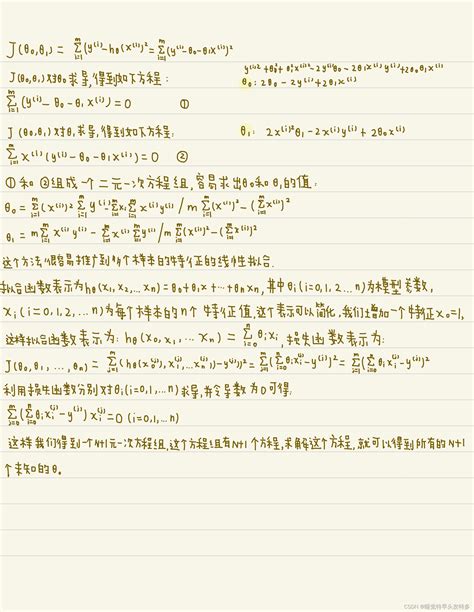 J(θ₀,θ₁) = Σᵢ₌₁ᵐ (y⁽ⁱ⁾-hθ(x⁽ⁱ⁾))² = Σᵢ₌₁ᵐ (y⁽ⁱ⁾-θ₀-θ₁x⁽ⁱ⁾)²
y⁽ⁱ⁾²+θ₀²+θ₁²x⁽ⁱ⁾²-2y⁽ⁱ⁾θ₀-2θ₁x⁽ⁱ⁾y⁽ⁱ⁾+2θ₀θ₁x⁽ⁱ⁾
J(θ₀,θ₁)对θ₀求导,得到如下方程:
θ₀: 2θ₀-2y⁽ⁱ⁾+2θ₁x⁽ⁱ⁾
Σᵢ₌₁ᵐ (y⁽ⁱ⁾-θ₀-θ₁x⁽ⁱ⁾)=0 ①
J(θ₀,θ₁)对θ₁求导,得到如下方程:
θ₁: 2x⁽ⁱ⁾²θ₁-2x⁽ⁱ⁾y⁽ⁱ⁾+2θ₀x⁽ⁱ⁾
Σᵢ₌₁ᵐ x⁽ⁱ⁾(y⁽ⁱ⁾-θ₀-θ₁x⁽ⁱ⁾)=0 ②
①和②组成一个二元一次方程组,容易求出θ₀和θ₁的值:
θ₀ = Σᵢ₌₁ᵐ (x⁽ⁱ⁾)² Σᵢ₌₁ᵐ y⁽ⁱ⁾ - Σᵢ₌₁ᵐ xᵢ Σᵢ₌₁ᵐ x⁽ⁱ⁾y⁽ⁱ⁾ / m Σᵢ₌₁ᵐ (x⁽ⁱ⁾)² - (Σᵢ₌₁ᵐ x⁽ⁱ⁾)²
θ₁ = m Σᵢ₌₁ᵐ x⁽ⁱ⁾y⁽ⁱ⁾ - Σᵢ₌₁ᵐ x⁽ⁱ⁾ Σᵢ₌₁ᵐ y⁽ⁱ⁾ / m Σᵢ₌₁ᵐ (x⁽ⁱ⁾)² - (Σᵢ₌₁ᵐ x⁽ⁱ⁾)²
这个方法很容易推广到多个样本的特征的线性拟合.
拟合函数表示为hθ(x₁,x₂,…xₙ)=θ₀+θ₁x+…θₙxₙ,其中θᵢ(i=0,1,2…n)为模型参数,
xᵢ(i=0,1,2,…n)为每个样本的n个特征值,这个表示可以简化,我们增加一个特征x₀=1,
这样拟合函数表示为: hθ(x₀,x₁,…xₙ)=Σᵢ₌₀ⁿ θᵢxᵢ,损失函数表示为:
J(θ₀,θ₁,…,θₙ) = Σⱼ₌₁ᵐ (hθ(x₀⁽ʲ⁾,x₁⁽ʲ⁾,…xₙ⁽ʲ⁾)-y⁽ʲ⁾)² = Σⱼ₌₁ᵐ (Σᵢ₌₀ⁿ θᵢxᵢ⁽ʲ⁾-y⁽ʲ⁾)² = Σⱼ₌₁ᵐ (Σᵢ₌₀ⁿ θᵢxᵢ⁽ʲ⁾-y⁽ʲ⁾)²
利用损失函数分别对θᵢ(i=0,1,…n)求导,并令导数为0可得:
Σⱼ₌₀ᵐ (Σᵢ₌₀ⁿ θᵢxᵢ⁽ʲ⁾-y⁽ʲ⁾)xᵢ⁽ʲ⁾=0 (i=0,1,…n)
这样我们得到一个N+1元一次方程组,这个方程组有N+1个方程,求解这个方程,就可以得到所有的N+1
个未知的θ.
CSDN @睡觉特早头发特多